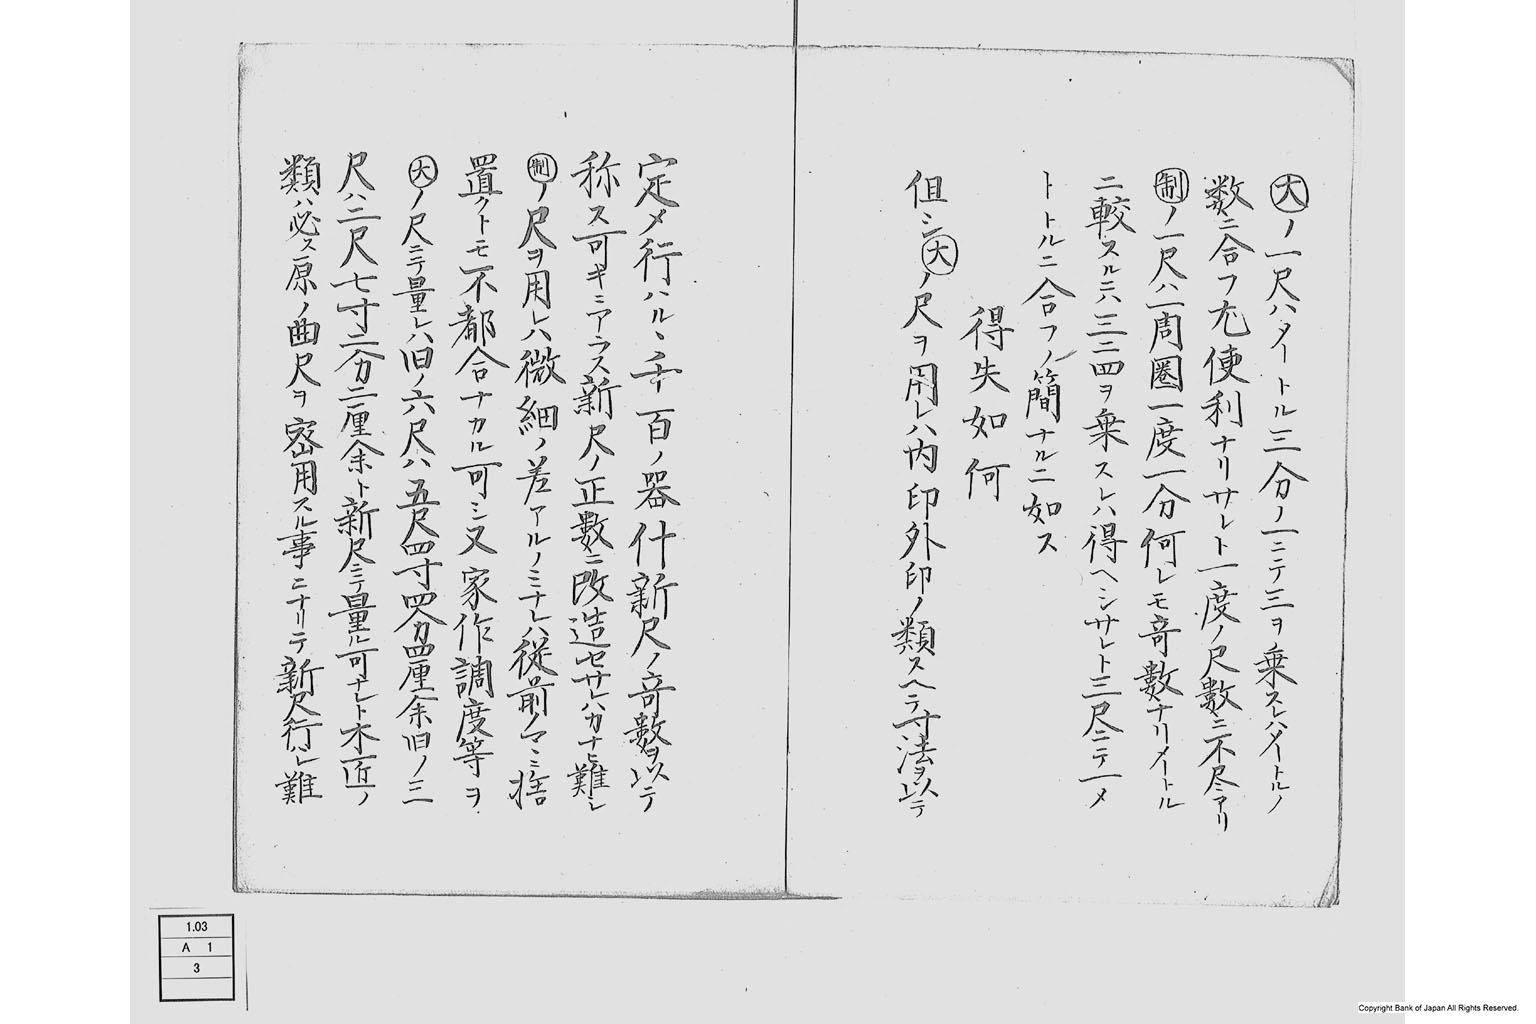 ㊛大ノ一尺ハメートル三分ノ一ニテ三ヲ乗スレハメイトルノ
数ニ合フ尤便利ナリサレト一度ノ尺数ニ不尽アリ
制ノ一尺ハ周圏一度一分何レモ竒数ナリメイトル
ニ較スルニハ三三四ヲ乗スレハ得ヘシサレト三尺ニテ一メ
トトルニ合フノ簡ナルニ如ス
得失如何
但シ大ノ尺ヲ用レハ内印外印ノ類スヘテ寸法ヲ以テ
定メ行ハルヽ千百ノ器什新尺ノ竒數ヲ以テ
称ス可ギミアラス新尺ノ正數ニ改造セサレハカナヒ難シ
制ノ尺ヲ用レハ微細ノ差アルノミナレハ従前ノマミ捨
置クトモ不都合ナカル可シ又家作調度等ヲ
大ノ尺ニテ量レハ旧ノ六尺ハ五尺四寸四分四厘余旧ノ三
尺ハ二尺七寸二分二厘余ト新尺ニテ量ル可ケレト木匠ノ
類ハ必ス原ノ曲尺ヲ密用スル事ニナリテ新尺行ハレ難
1.03
A 1
3
Copyright Bank of Japan All Rights Reserved.